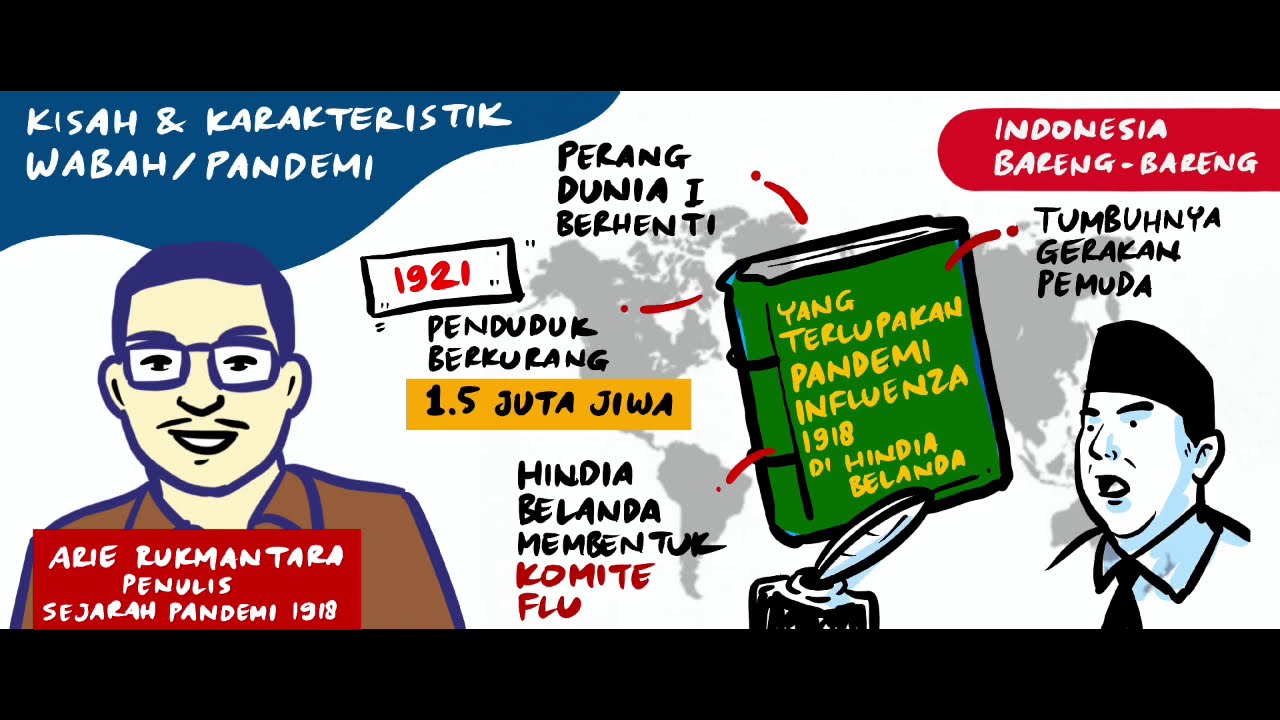 KISAH & KARAKTERISTIK
WABAH/PANDEMI
INDONESIA
BARENG-BARENG
PERANG
DUNIA I
BERHENTI
TUMBUHNYA
GERAKAN
PEMUDA
1921
PENDUDUK
BERKURANG
1.5 JUTA JIWA
YANG
TERLUPAKAN
PANDEMI
INFLUENZA
1918
DI HINDIA
BELANDA
HINDIA
BELANDA
MEMBENTUK
KOMITE
FLU
ARIE RUKMANTARA
PENULIS
SEJARAH PANDEMI 1918